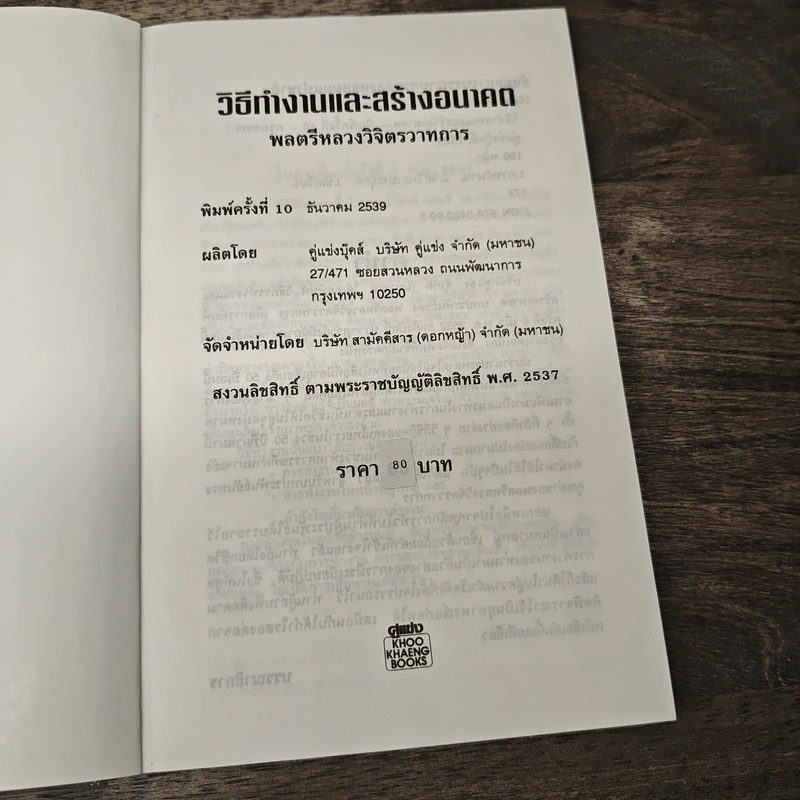 วิธีทำงานและสร้างอนาคต
พลตรีหลวงวิจิตรวาทการ
พิมพ์ครั้งที่ 10 ธันวาคม 2539
ผลิตโดย คู่แข่งบุ๊คส์ บริษัท คู่แข่ง จำกัด (มหาชน)
27/471 ซอยสวนหลวง ถนนพัฒนาการ
กรุงเทพฯ 10250
จัดจำหน่ายโดย บริษัท สามัคคีสาร (ดอกหญ้า) จำกัด (มหาชน)
สงวนลิขสิทธิ์ ตามพระราชบัญญัติลิขสิทธิ์ พ.ศ. 2537
ราคา 80 บาท
คู่แข่ง
KHOO
KHAENG
BOOKS